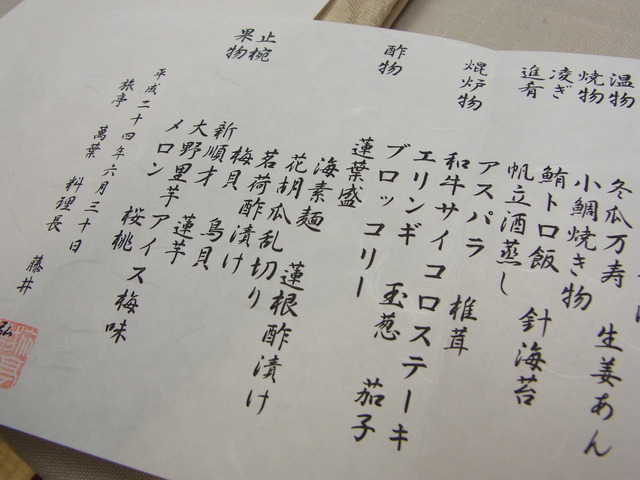 温物
冬瓜万寿 生姜あん
焼物
小鯛焼き物
凌ぎ
鮪トロ飯 針海苔
進肴
帆立酒蒸し
焜炉物
アスパラ 椎茸
和牛サイコロステーキ
エリンギ 玉葱 茄子
ブロッコリー
酢物
蓮葉盛
海素麺
花胡瓜乱切り 蓮根酢漬け
茗荷酢漬け
梅貝 鳥貝
新順才 蓮芋
大野里芋アイス梅味
止椀
果物
メロン 桜桃
平成二十四年六月三十日
旅亭 萬葉 料理長 藤井
弘